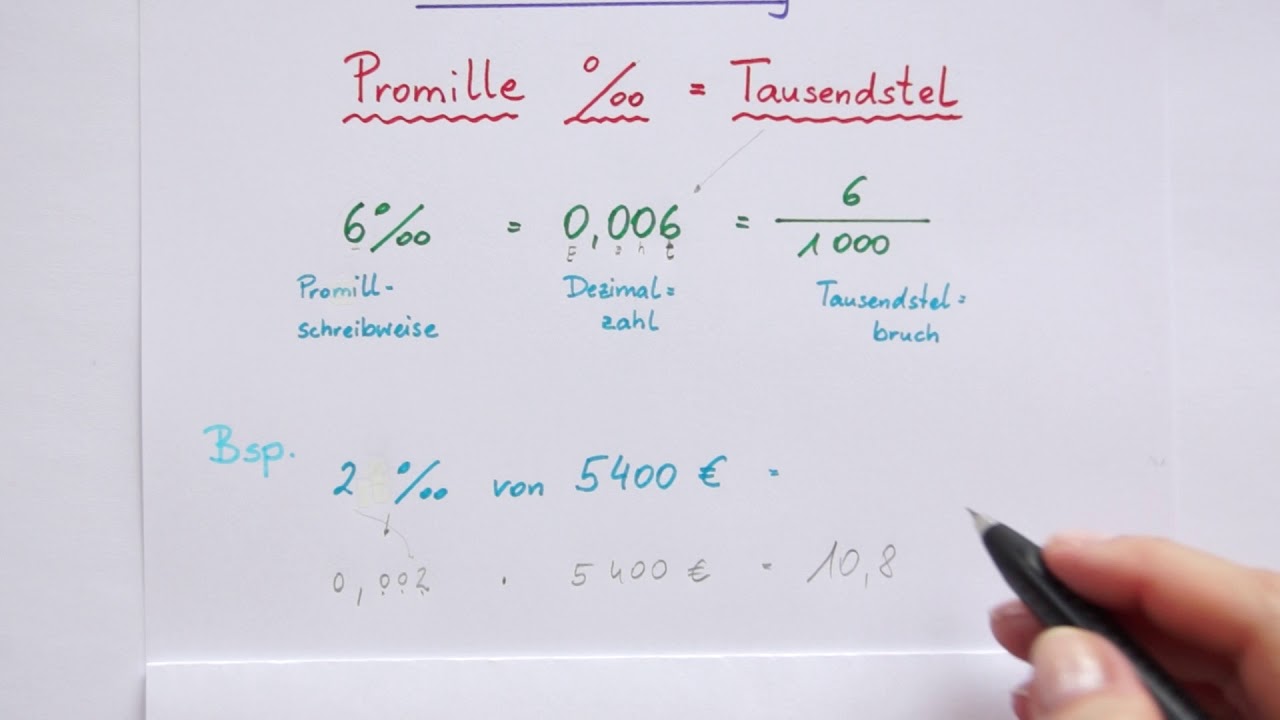 Promille ‰ = Tausendstel
6‰ = 0,006 = 6/1000
E z h t
Promill- Dezimal= Tausendstel=
schreibweise zahl bruch
Bsp. 2 ‰ von 5400 € =
0,002 · 5400 € = 10,8